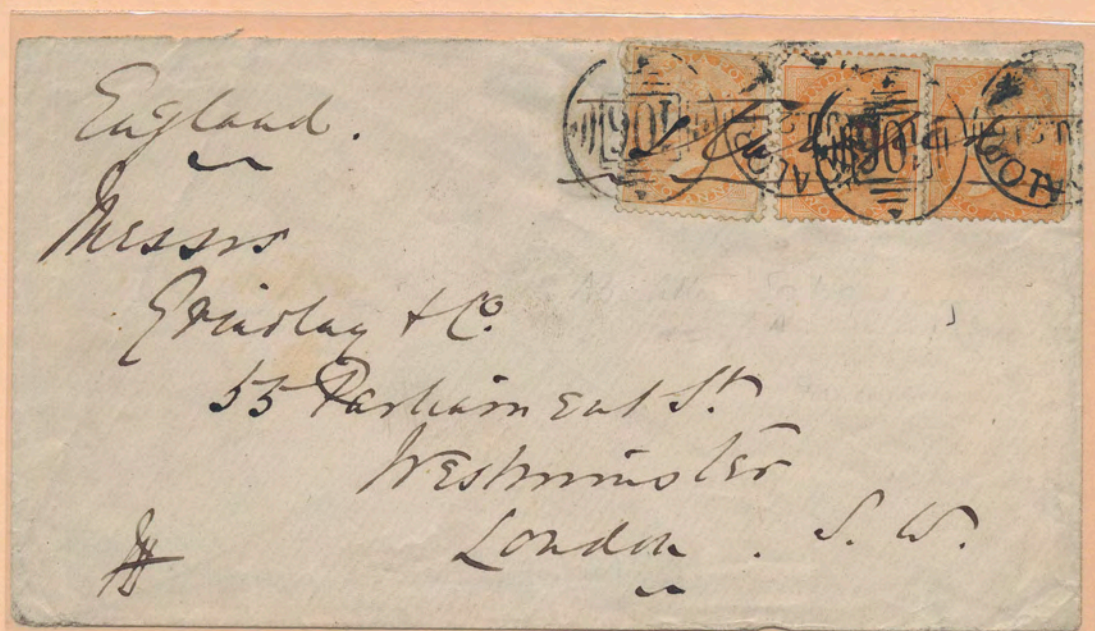 England.
Messrs
Grindlay & Co.
55 Parliament St.
Westminster
London. S. W.
90 90